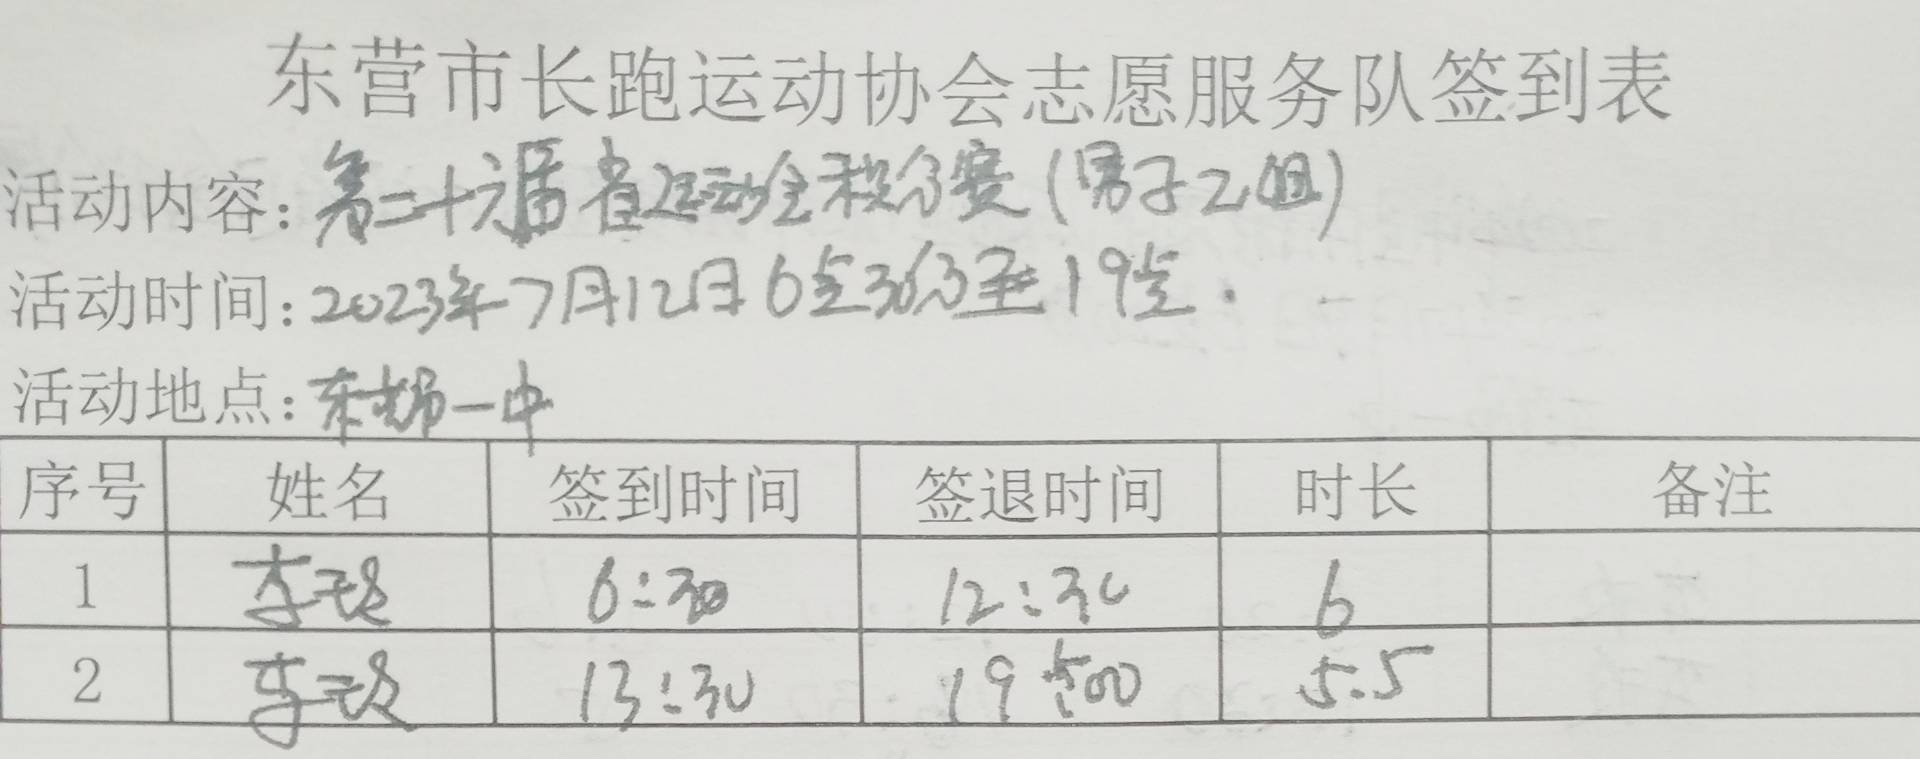 东营市长跑运动协会志愿服务队签到表
活动内容：第二十六届省运动会积分赛(男子乙组)
活动时间：2023年7月12日6点30分至19点.
活动地点：东营一中
序号 姓名 签到时间 签退时间 时长 备注
1 李 6:30 12:30 6
2 李 13:30 19:00 5.5